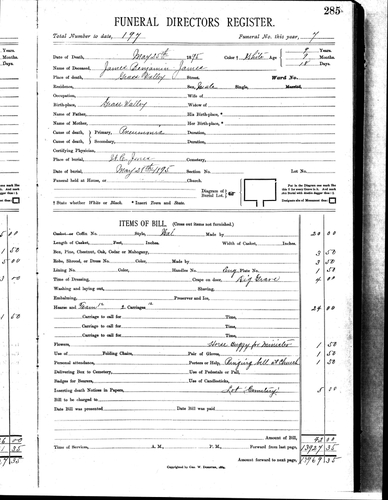 285
FUNERAL DIRECTORS REGISTER.
Total Number to date, 197 Funeral No. this year, 7
Date of Death, May 25th 1895 Color † White Age 8 Years.
Name of Deceased, James Benjamin James 9 Months
Place of death, Grass Valley Street, 18 Days.
Residence, Ward No.
Occupation, Sex, Male Single, Married,
Birth-place, Grass Valley Wife of
Widow of
Name of Father, His Birth-place, *
Name of Mother, Her Birth-place, *
Cause of death, Primary, Pneumonia Duration,
Cause of death, Secondary, Duration,
Certifying Physician,
Place of burial, Cemetery,
Date of burial, May 26th 1895 Section No. Lot No.
Funeral held at House, or Church, Diagram of Burial Lot.
† State whether White or Black. * Insert Town and State.
ITEMS OF BILL. (Cross out items not furnished.)
Casket or Coffin No. Style, Made by 20 00
Length of Casket, Feet, Inches. Width of Casket, Inches.
Box, Pine, Chestnut, Oak, Cedar or Mahogany, 3 50
Robe, Shroud, or Dress No. Color, Made by 3 50
Lining No. Color, Handles No. Eng. Plate No. 1 50
Time of Dressing, Crape on door, Dig Grave 4 00
Washing and laying out, Shaving,
Embalming, Preserver and Ice,
Hearse and Team 2 Carriages 24 00
Carriage to call for Time,
Carriage to call for Time,
Carriage to call for Time,
Carriage to call for Time,
Flowers, Horse Buggy for Minister 1 50
Use of Folding Chairs, Pair of Gloves, 1 50
Personal attendance, Porters or Help, Ringing bell at Church 1 50
Delivering Box to Cemetery, Use of Pedestals or Pall,
Badges for Bearers, Use of Candlesticks,
Inserting death Notices in Papers, Lot Cemetery 5 00
Bill to be charged to
Date Bill was presented Date Bill was
Amount of Bill,
Time of Services, A. M., P. M. Forward from last page, 13927 35
Amount forward to next page,
Copyrighted by Geo. W.